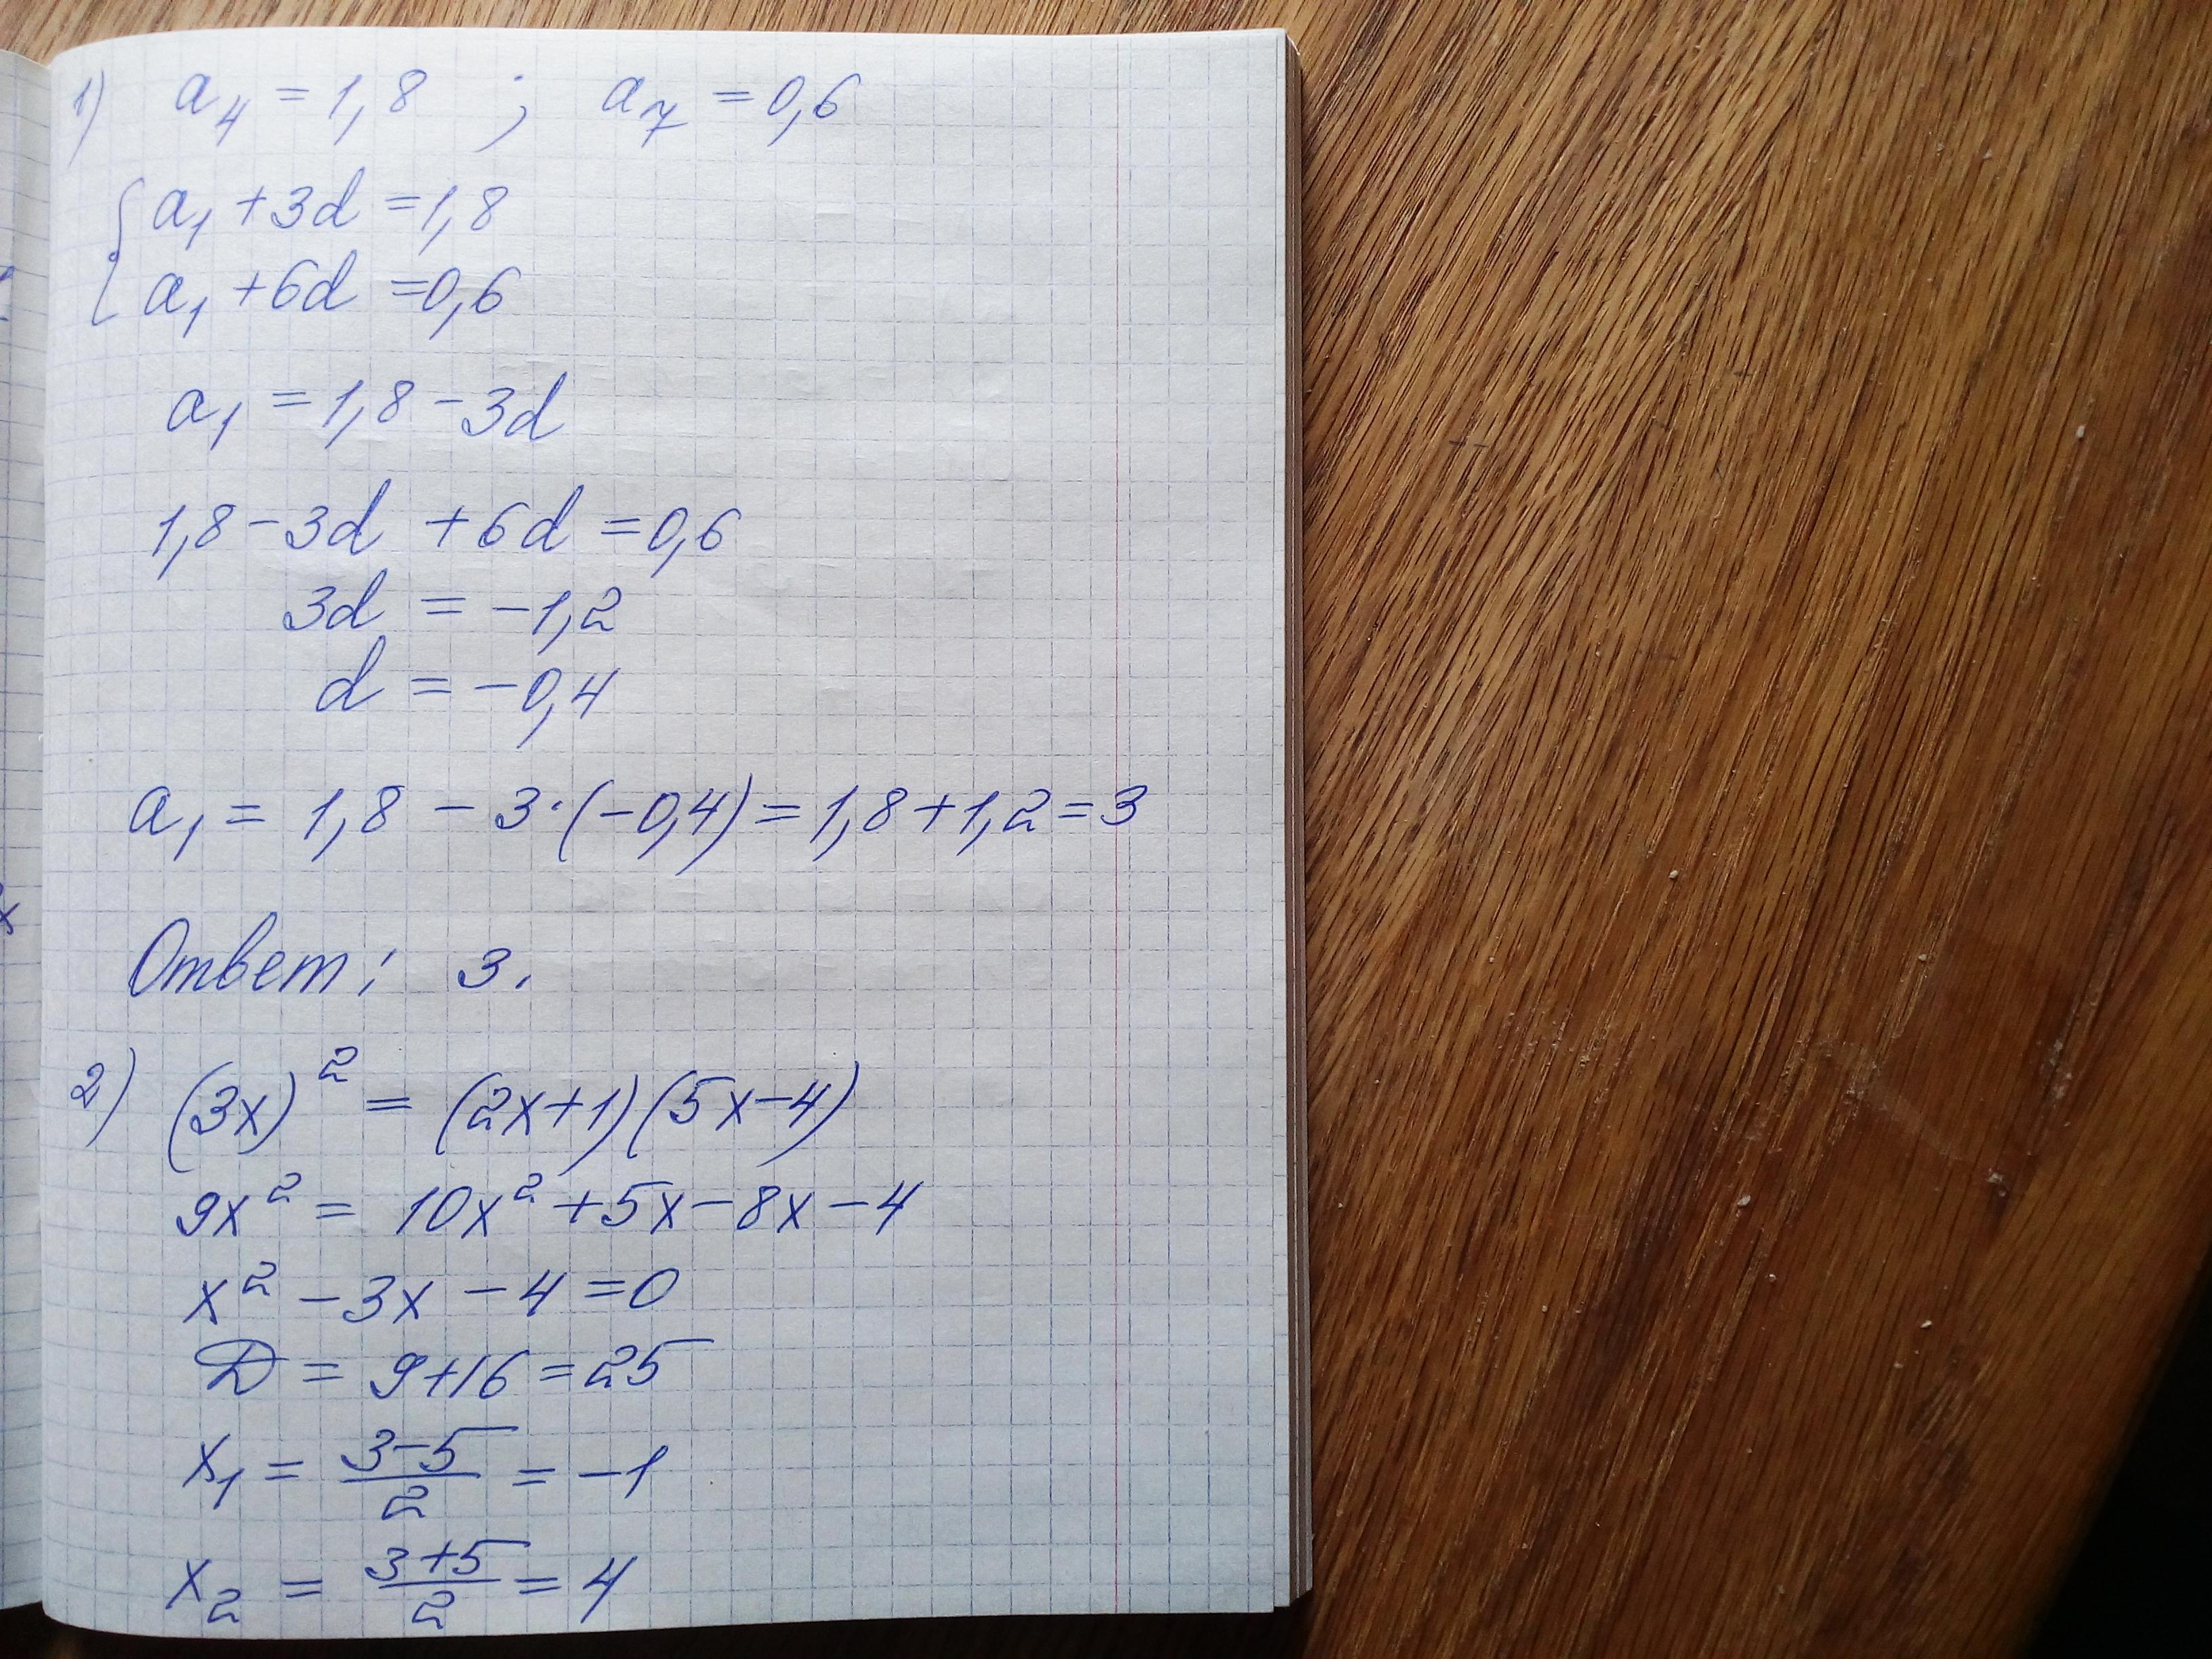 1) a₄ = 1,8 ; a₇ = 0,6
{ a₁ + 3d = 1,8
a₁ + 6d = 0,6
a₁ = 1,8 - 3d
1,8 - 3d + 6d = 0,6
3d = -1,2
d = -0,4
a₁ = 1,8 - 3·(-0,4) = 1,8 + 1,2 = 3
Ответ: 3.
2) (3x)² = (2x+1)(5x-4)
9x² = 10x² + 5x - 8x - 4
x² - 3x - 4 = 0
D = 9+16 = 25
x₁ = (3-5)/2 = -1
x₂ = (3+5)/2 = 4